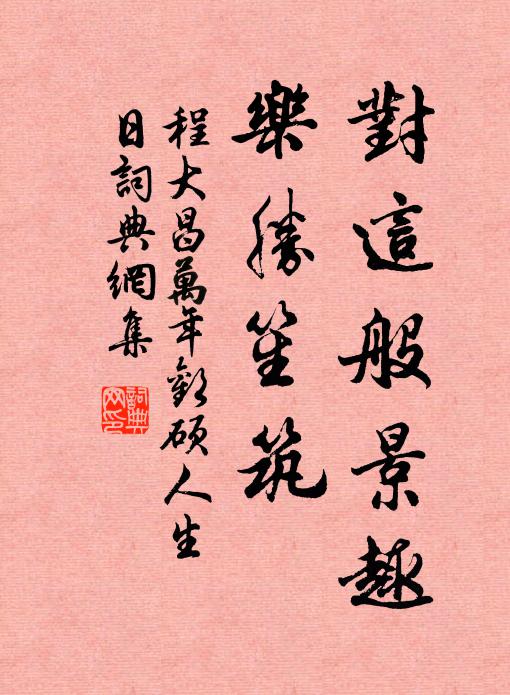 對這般景趣
樂勝笙筑
程大昌萬年歡碩人生
日詞典網集
詞典
网印